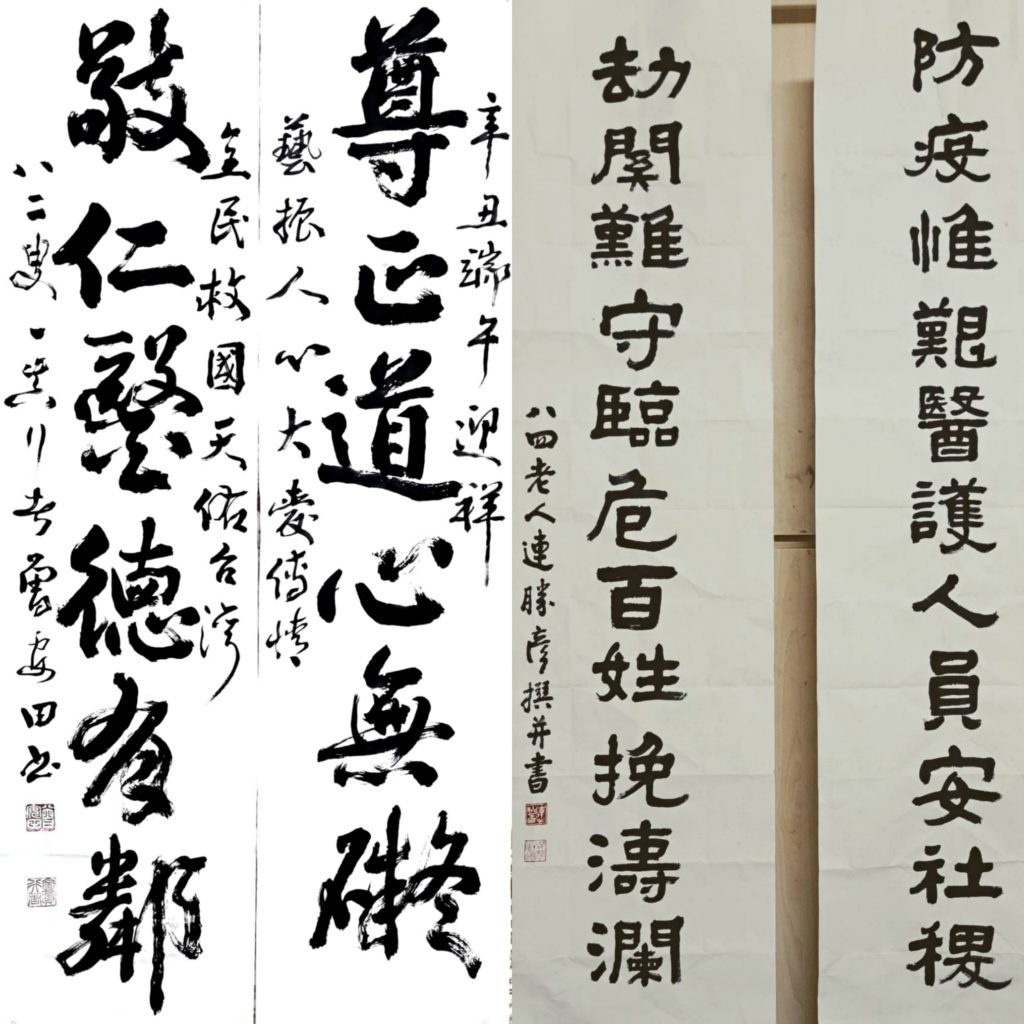 防疫惟艱醫護人員安社稷
劫關難守臨危百姓挽濤瀾
八四老人連勝彥撰并書
辛丑端午迎祥
尊正道心無礙
藝振人心大愛傳情
全民救國天佑台灣
敬仁醫德有鄰
八二叟一真行者曾安田書